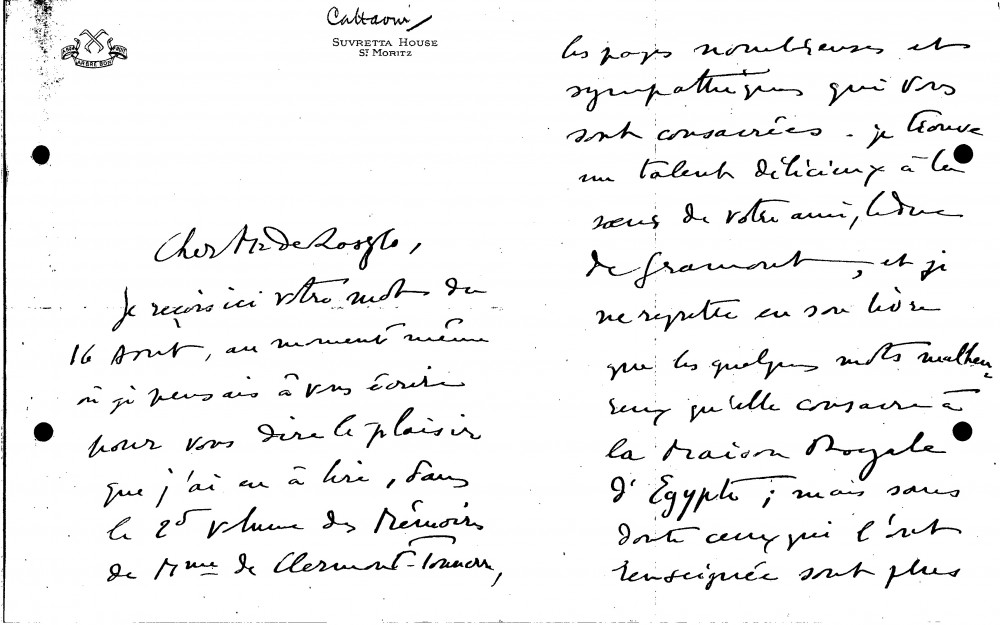 Cattaoui
SUVRETTA HOUSE
ST. MORITZ
ARBRE BON
Cher Mr de
Je reçois ici votre mot du
16 Août, au moment même
où je pensais à vous écrire
pour vous dire le plaisir
que j'ai eu à lire, dans
le 2d volume des Mémoires
de Mme de Clermont-Tonnerre,
les pages nombreuses et
sympathiques qui vous
sont consacrées. je trouve
un talent délicieux à la
sœur de votre ami, le duc
de Gramont, et je
ne regrette en son livre
que les quelques mots malheu=
reux qu'elle consacre à
la Maison Royale
d'Egypte ; mais sans
doute ceux qui l'ont
renseignée sont plus